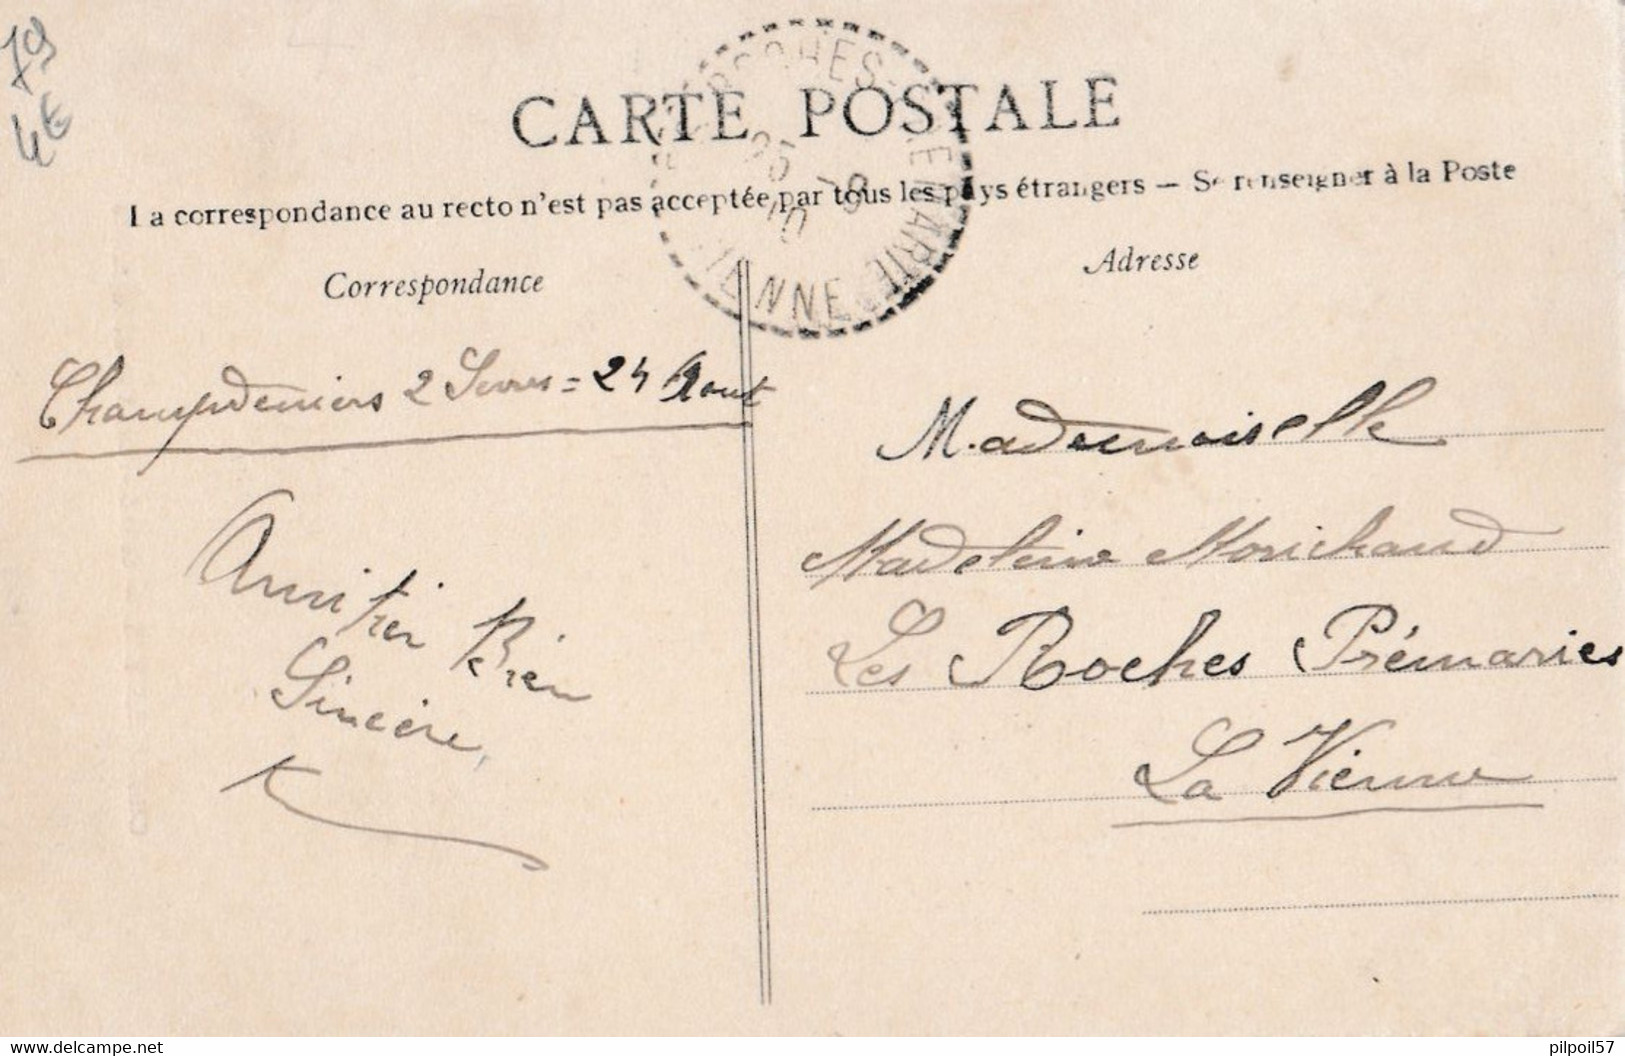 79
4€
CARTE POSTALE
La correspondance au recto n'est pas acceptée par tous les pays étrangers — Se renseigner à la Poste
Correspondance
Adresse
ROCHES-PREMARIE
VIENNE
Champdeniers 2 Sevres = 24 Aout
Mademoiselle
Madeleine Morichaud
Les Roches Prémaries
La Vienne
Amitier Bien
Sincère,
www.delcampe.net
pilpoil57